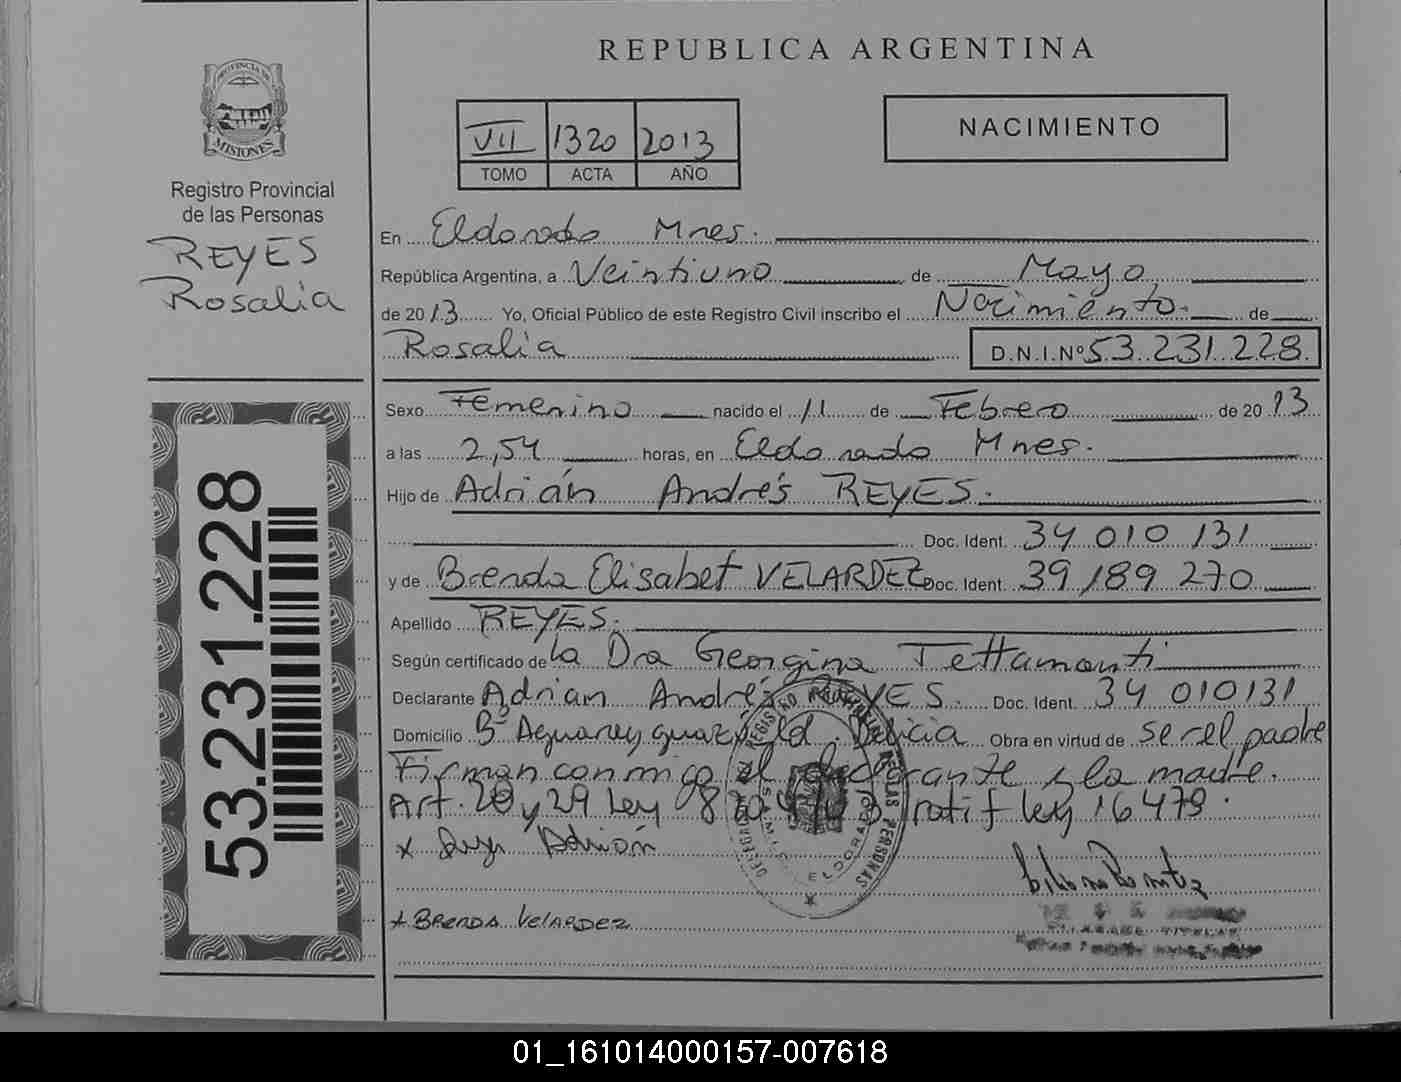 REPUBLICA ARGENTINA
PROVINCIA DE
MISIONES
Registro Provincial
de las Personas
REYES
Rosalia
VII 1320 2013
TOMO ACTA AÑO
NACIMIENTO
En Eldorado Mnes.
República Argentina, a Veintiuno de Mayo
de 2013 Yo, Oficial Público de este Registro Civil inscribo el Nacimiento de
Rosalia D.N.I.Nº 53.231.228.
Sexo Femenino nacido el 11 de Febrero de 2013
a las 2,54 horas, en Eldorado Mnes.
Hijo de Adrián Andrés REYES.
Doc. Ident. 34 010 131
y de Brenda Elisabet VELARDEZ Doc. Ident. 39 189 270
Apellido REYES.
Según certificado de la Dra Georgina Tettamanti
Declarante Adrian Andrés REYES. Doc. Ident. 34 010131
Domicilio Bº Delicia Obra en virtud de ser el padre
Firman conmigo el declarante y la madre.
Art. 28 y 29 Ley ratif ley 16478.
x Adrián
+ BRENDA VELARDEZ
53.231.228
ELDORADO
01_161014000157-007618